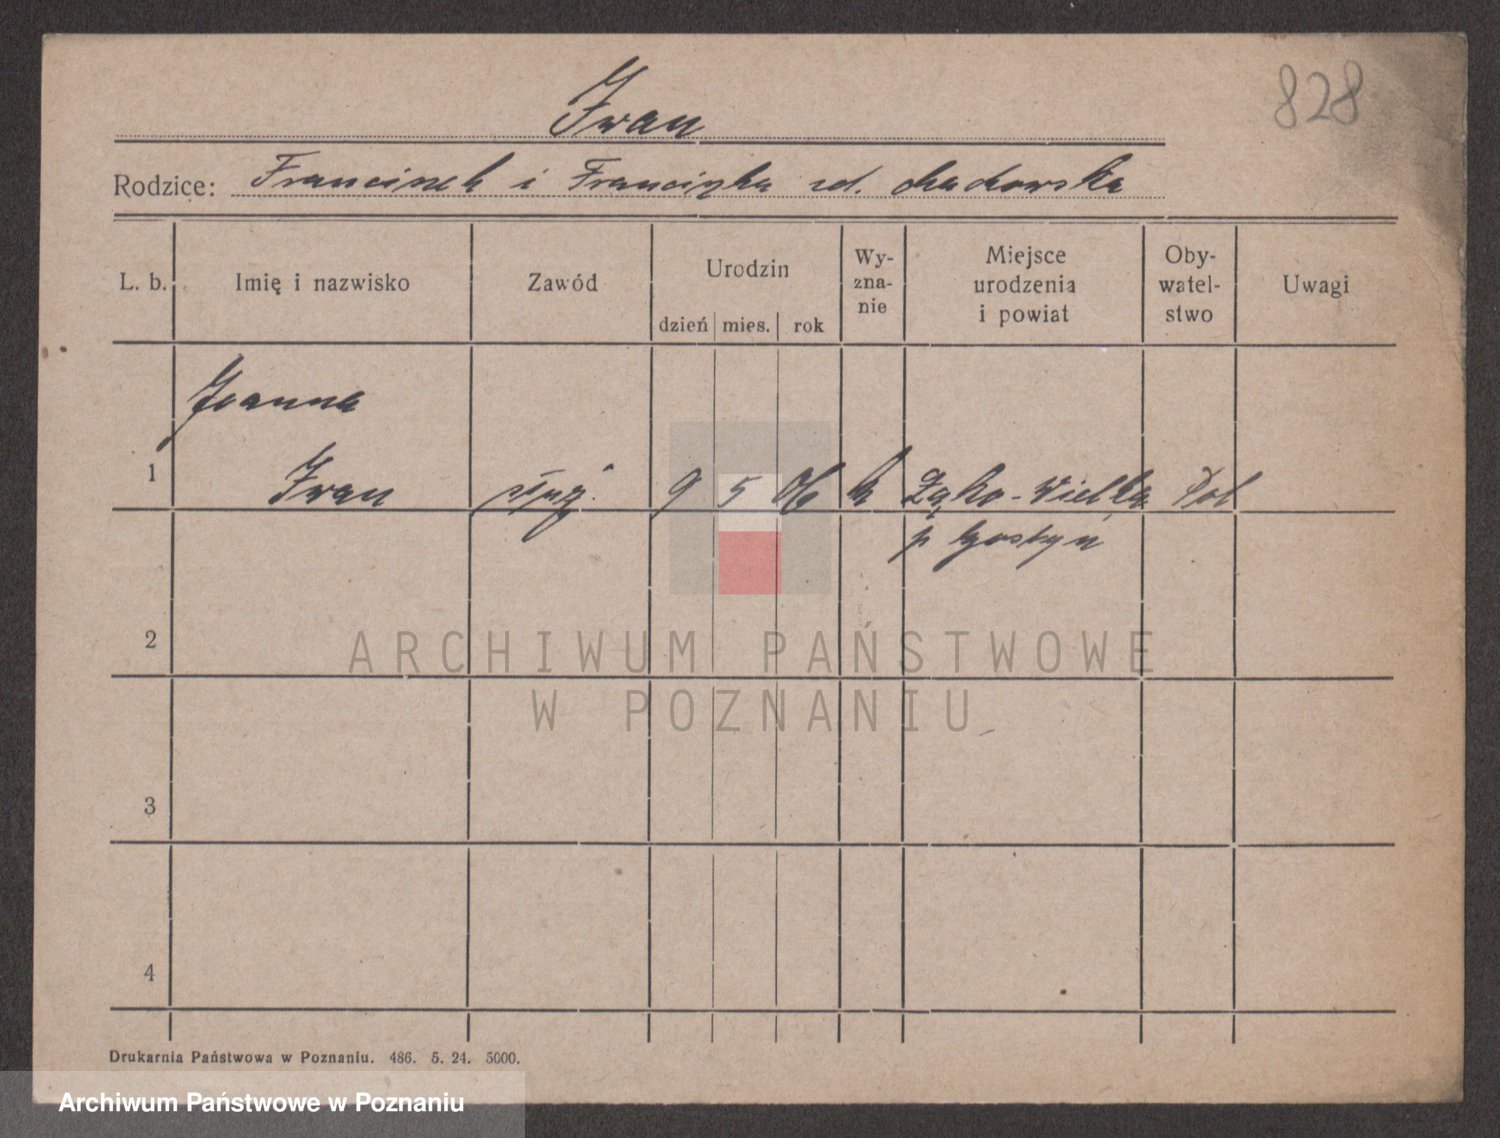 828
Iwan
Rodzice: Franciszek i Franciszka zd. Machowska
L. b. Imię i nazwisko Zawód Urodzin dzień mies. rok Wy-zna-nie Miejsce urodzenia i powiat Oby-watel-stwo Uwagi
Joanna
1 Iwan służ. 9 5 06 k Łęka-Wielka Pol
p Gostyń
2
ARCHIWUM PAŃSTWOWE
W POZNANIU
3
4
Drukarnia Państwowa w Poznaniu. 486. 5. 24. 5000.
Archiwum Państwowe w Poznaniu